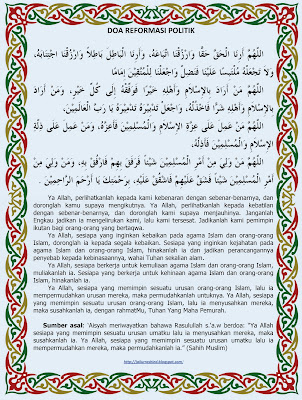 DOA REFORMASI POLITIK
اللَّهُمَّ أَرِنَا الْحَقَّ حَقًّا وَارْزُقْنَا اتِّبَاعَهُ، وَأَرِنَا الْبَاطِلَ بَاطِلاً وَارْزُقْنَا اجْتِنَابَهُ،
وَلاَ تَجْعَلْهُ مُلْتَبِسًا عَلَيْنَا فَنَضِلَّ وَاجْعَلْنَا لِلْمُتَّقِينَ إِمَامًا
اللَّهُمَّ مَنْ أَرَادَ بِالإِسْلاَمِ وَأَهْلِهِ خَيْرًا فَوَفِّقْهُ إِلَى كُلِّ خَيْرٍ، وَمَنْ أَرَادَ
بِالإِسْلاَمِ وَأَهْلِهِ شَرًّا فَاخْذُلْهُ، وَاجْعَلْ تَدْبِيرَهُ تَدْمِيرَهُ يَا رَبَّ الْعَالَمِينَ.
اللَّهُمَّ مَنْ عَمِلَ عَلَى عِزَّةِ الإِسْلاَمِ وَالْمُسْلِمِينَ فَأَعِزَّهُ، وَمَنْ عَمِلَ عَلَى ذِلَّةِ
الإِسْلاَمِ وَالْمُسْلِمِينَ فَأَذِلَّهُ.
اللَّهُمَّ مَنْ وَلِيَ مِنْ أَمْرِ الْمُسْلِمِينَ شَيْئًا فَرَفَقَ بِهِمْ فَارْفُقْ بِهِ، وَمَنْ وَلِيَ مِنْ
أَمْرِ الْمُسْلِمِينَ شَيْئًا فَشَقَّ عَلَيْهِمْ فَاشْقُقْ عَلَيْهِ، بِرَحْمَتِكَ يَا أَرْحَمَ الرَّاحِمِينَ.
Ya Allah, perlihatkanlah kepada kami kebenaran dengan sebenar-benarnya, dan
doronglah kamu supaya mengikutnya. Ya Allah, perlihatkanlah kepada kebatilan
dengan sebenar-benarnya, dan doronglah kami supaya menjauhinya. Janganlah
Engkau jadikan ia mengelirukan kami, lalu kami tersesat. Jadikanlah kami pemimpin
ikutan bagi orang-orang yang bertaqwa.
Ya Allah, sesiapa yang inginkan kebaikan pada agama Islam dan orang-orang
Islam, doronglah ia kepada segala kebaikan. Sesiapa yang inginkan kejahatan pada
agama Islam dan orang-orang Islam, hinakanlah ia dan jadikan perancangannya
penyebab kepada kebinasaannya, wahai Tuhan sekalian alam.
Ya Allah, sesiapa berkerja untuk kemuliaan agama Islam dan orang-orang Islam,
muliakanlah ia. Sesiapa yang berkerja untuk kehinaan agama Islam dan orang-orang
Islam, hinakanlah ia.
Ya Allah, sesiapa yang memimpin sesuatu urusan orang-orang Islam, lalu ia
mempermudahkan urusan mereka, maka permudahkanlah untuknya. Ya Allah, sesiapa
yang memimpin sesuatu urusan orang-orang Islam, lalu ia menyusahkan mereka,
maka susahkanlah ia, dengan rahmatMu, Tuhan Yang Maha Pemurah.
Sumber asal: 'Aisyah meriwayatkan bahawa Rasulullah s.'a.w berdoa: "Ya Allah
sesiapa yang memimpin sesuatu urusan umatku lalu ia menyusahkan mereka, maka
susahkanlah ia. Ya Allah, sesiapa yang memimpin sesuatu urusan umatku lalu ia
mempermudahkan mereka, maka permudahkanlah ia." (Sahih Muslim)